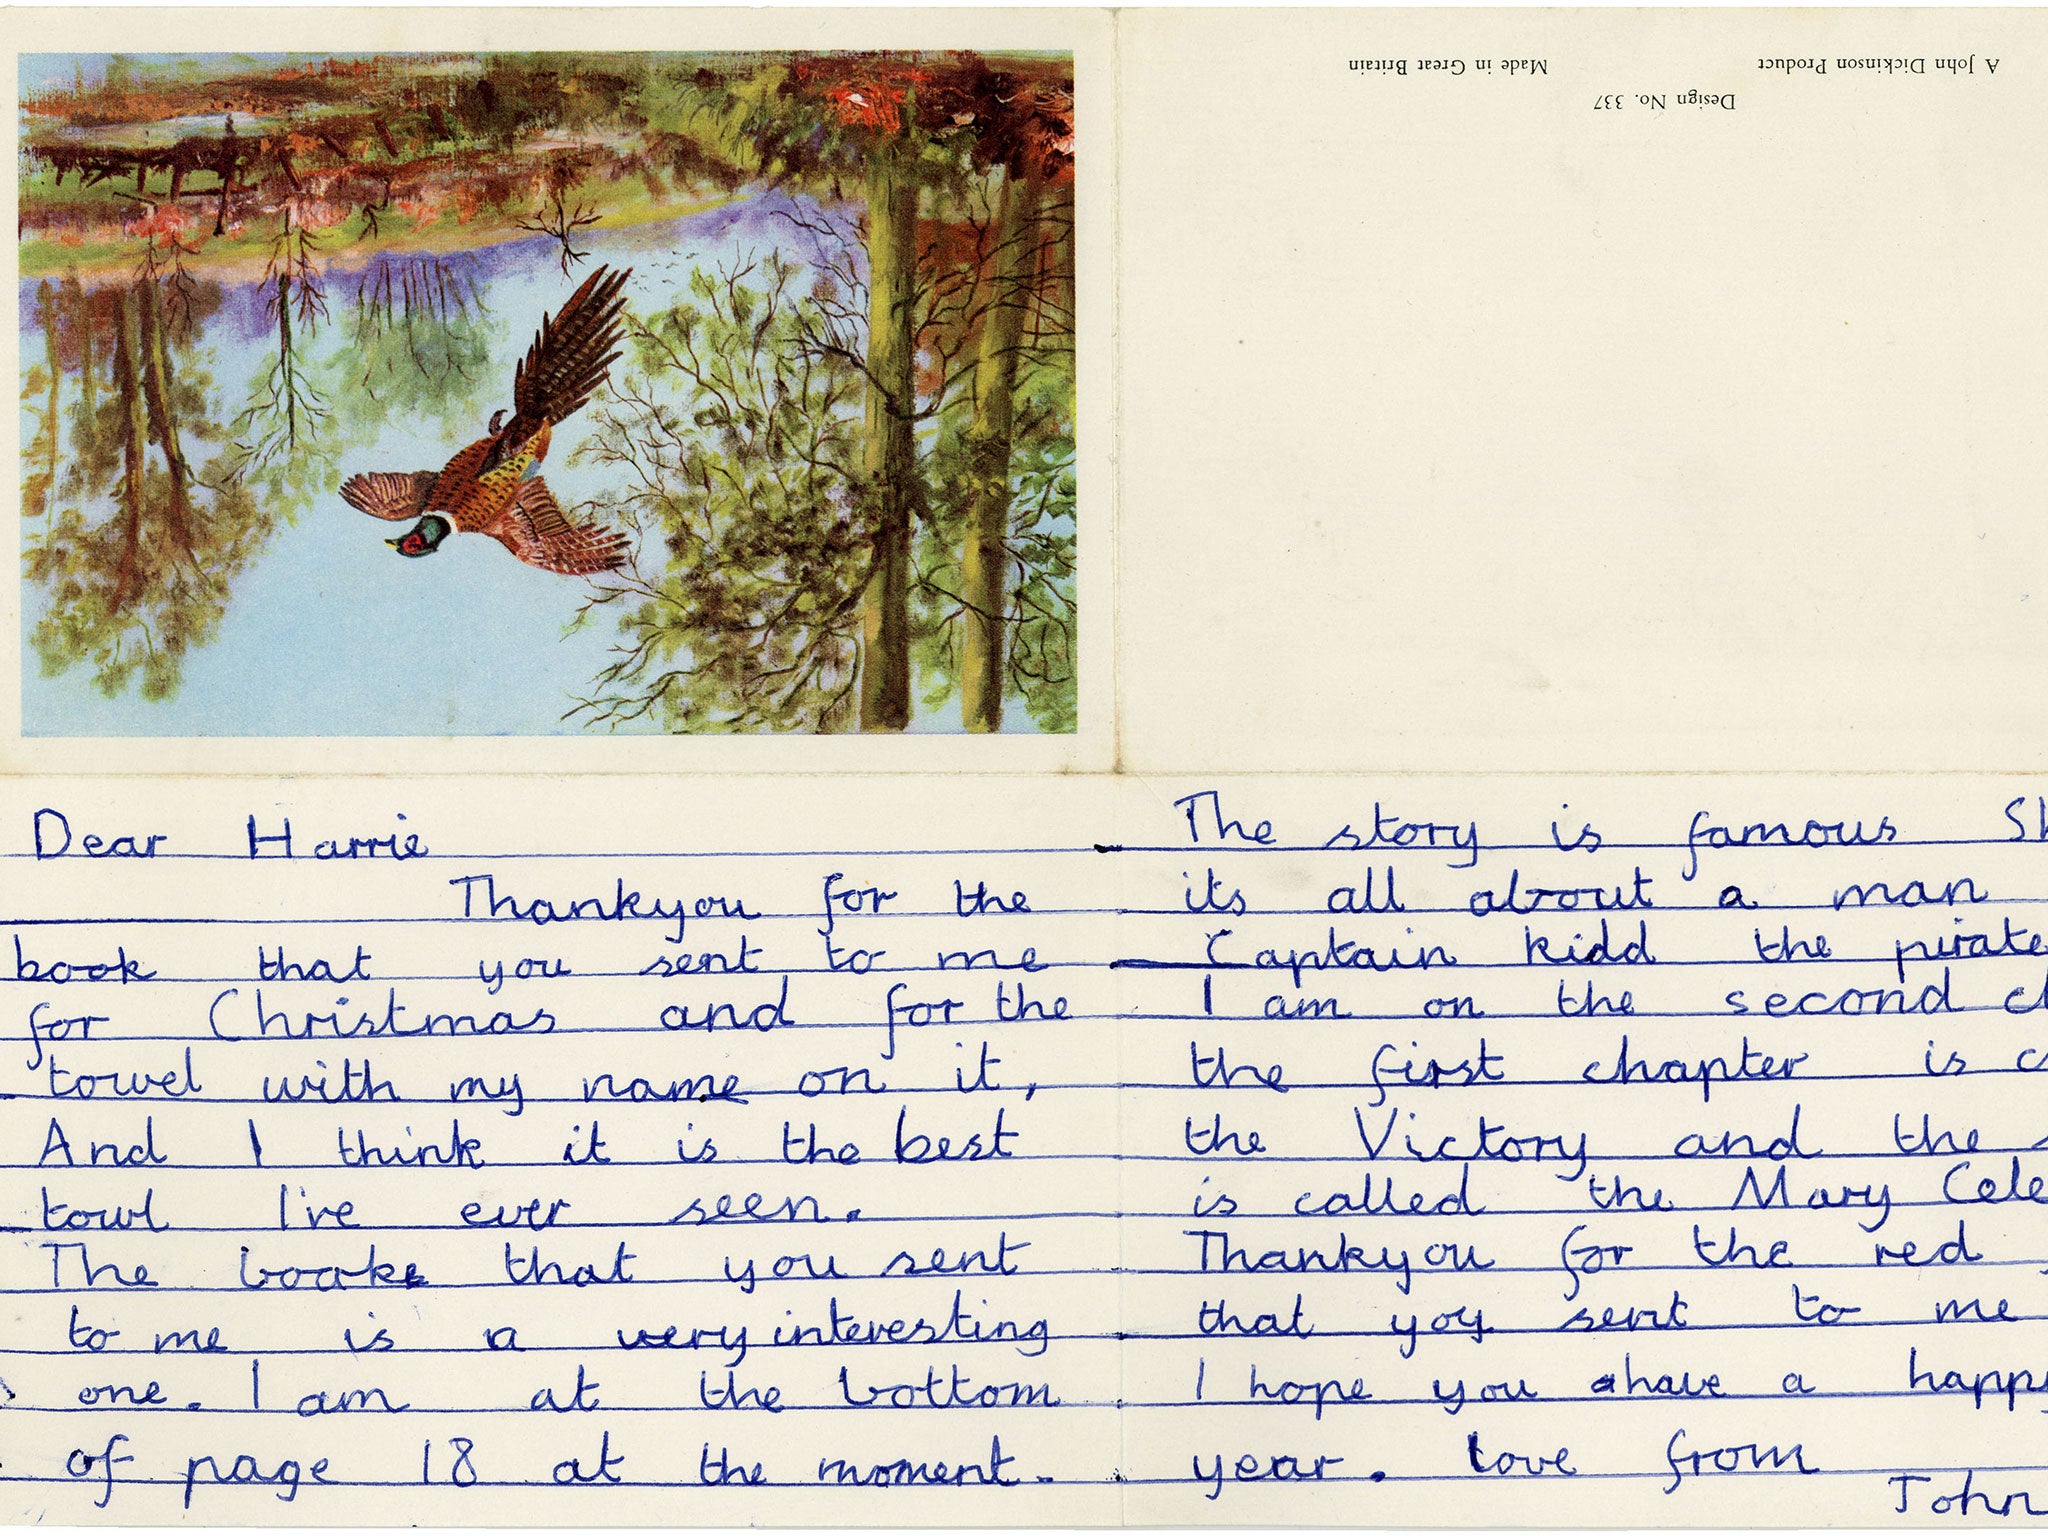 A John Dickinson Product
Made in Great Britain
Design No. 337
Dear Harrie
Thankyou for the
book that you sent to me
for Christmas and for the
towel with my name on it,
And I think it is the best
towl I've ever seen.
The book that you sent
to me is a very interesting
one. I am at the bottom
of page 18 at the moment.
The story is famous Sh
its all about a man
Captain kidd the pirate
I am on the second ch
the first chapter is c
the Victory and the s
is called the Mary Cele
Thankyou for the red
that you sent to me
I hope you have a happy
year. love from
John